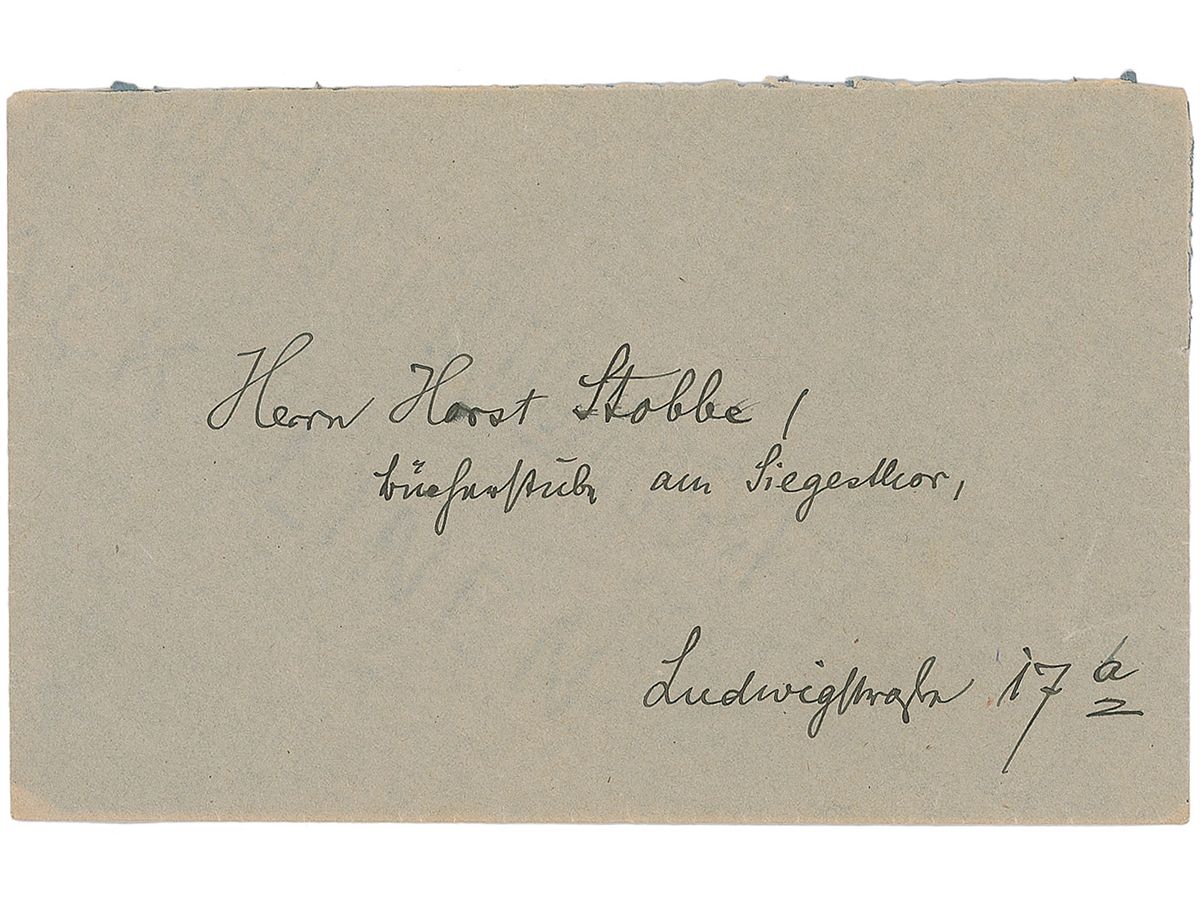 Herrn Horst Stobbe,
Bücherstube am Siegesthor,
Ludwigstraße 17 a